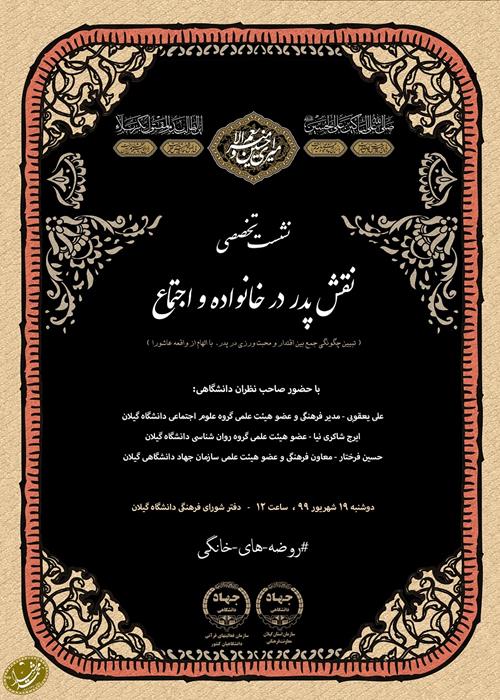 امیری حسین و نعم الامیر
نشست تخصصی
نقش پدر در خانواده و اجتماع
( تبیین چگونگی جمع بین اقتدار و محبت ورزی در پدر، با الهام از واقعه عاشورا )
با حضور صاحب نظران دانشگاهی:
علی یعقوبی - مدیر فرهنگی و عضو هیئت علمی گروه علوم اجتماعی دانشگاه گیلان
ایرج شاکری نیا - عضو هیئت علمی گروه روان شناسی دانشگاه گیلان
حسین فرختار - معاون فرهنگی و عضو هیئت علمی سازمان جهاد دانشگاهی گیلان
دوشنبه ۱۹ شهریور ۹۹ ، ساعت ۱۲ - دفتر شورای فرهنگی دانشگاه گیلان
#روضه-های-خانگی
جهاد
دانشگاهی
سازمان استان گیلان
معاونت فرهنگی
جهاد
دانشگاهی
سازمان فعالیتهای قرآنی
دانشگاهیان کشور